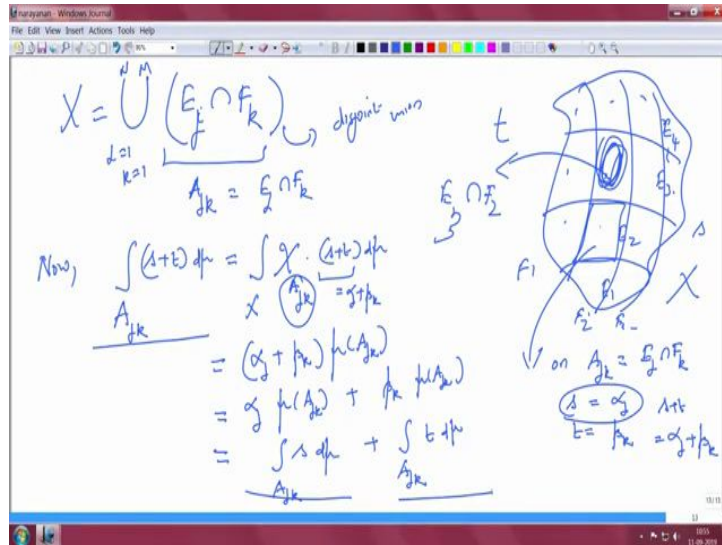 narayanan - Windows Journal
File Edit View Insert Actions Tools Help
N M
X = ⋃ ⋃ (E_j ∩ F_k) disjoint union
j=1
k=1
A_jk = E_j ∩ F_k
t
E_3 ∩ F_2
E_4
E_3
s
E_2
X
F_1
E_1
F_2
Now, ∫_{A_jk} (s+t) dμ = ∫_X χ_{A_jk} · (s+t) dμ
= α_j + β_k
= (α_j + β_k) μ(A_jk)
= α_j μ(A_jk) + β_k μ(A_jk)
= ∫_{A_jk} s dμ + ∫_{A_jk} t dμ
on A_jk = E_j ∩ F_k
s = α_j s+t
t = β_k = α_j + β_k
13/13
13
10:55
11-09-2019